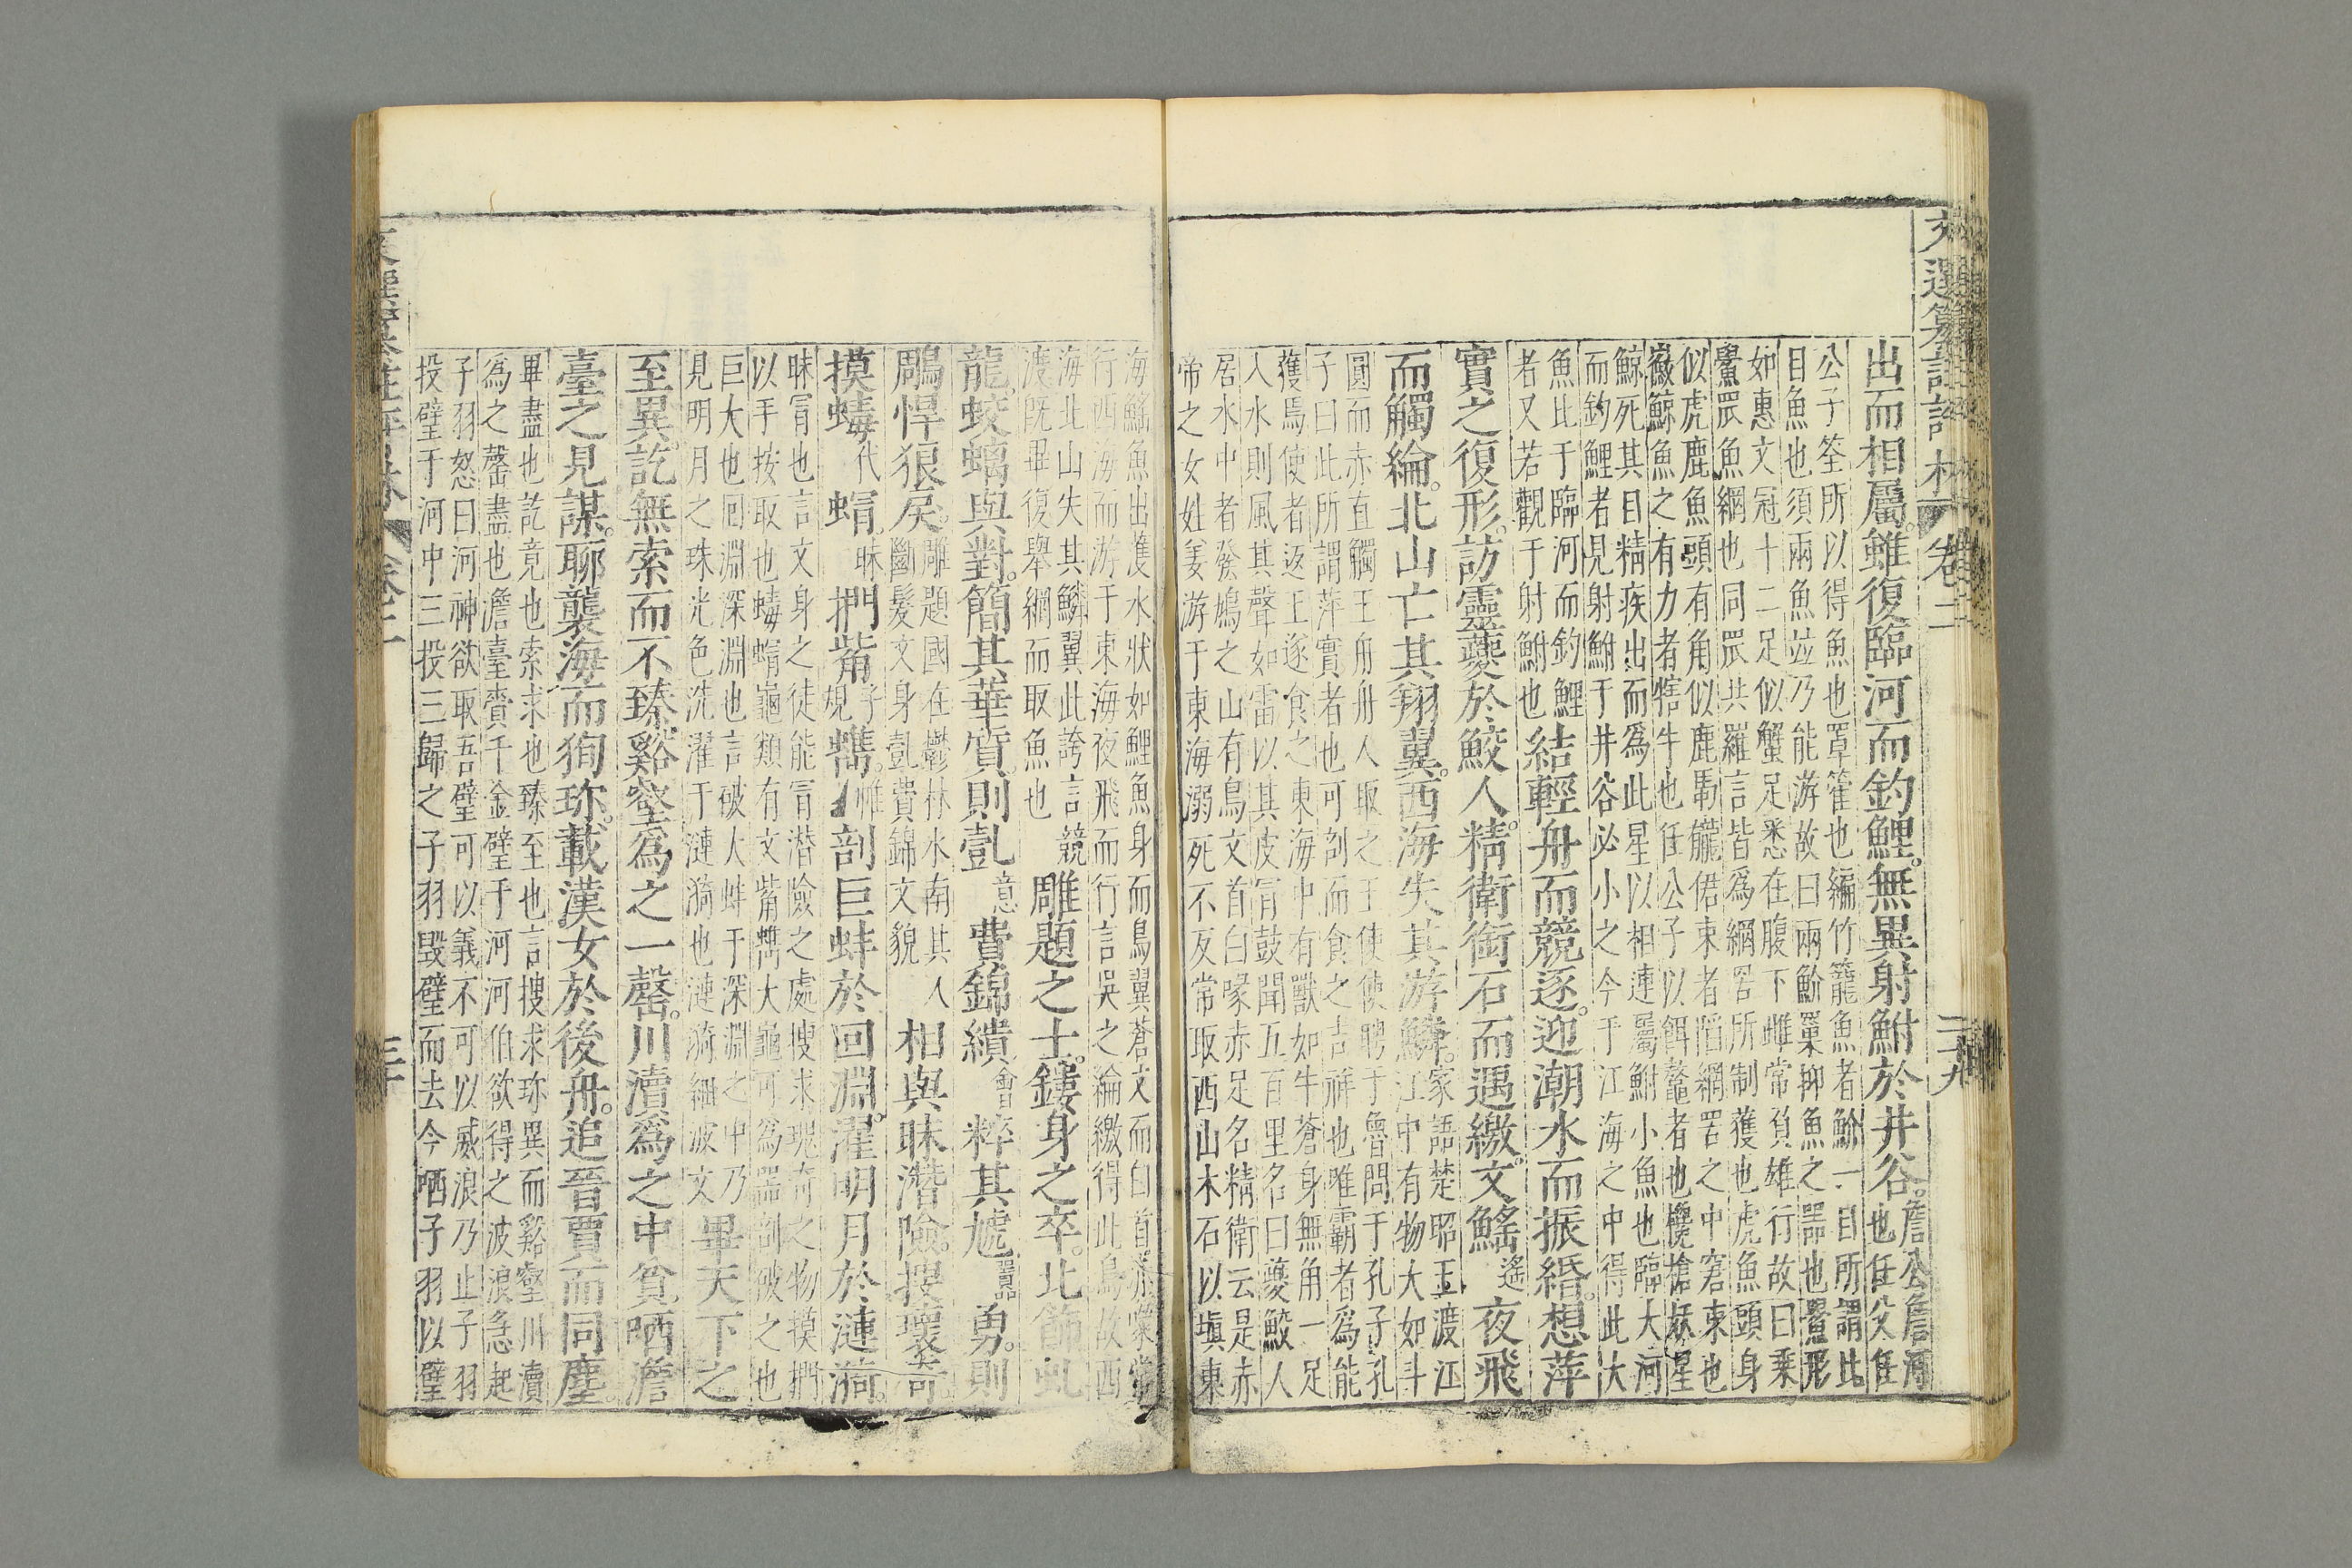 文選纂註評林 卷二 二十九
出而相屬。雖復臨河而釣鯉。無異射鮒於井谷。詹公詹河也任父任
公子筌所以得魚也罩籗也編竹籠魚者䱤一曰所謂比
目魚也須兩魚並乃能游故曰兩䱤罺抑魚之器也鱟形
如惠文冠十二足似蟹足悉在腹下雌常負雄行故曰乘
鱟罛魚網也同罛共羅言皆爲網罟所制獲也虎魚頭身
似虎鹿魚頭有角似鹿馬龓僒束者䧟網罟之中窘束也
徽鯨魚之有力者犗牛也任公子以餌鼇者也欃槍妖星
鯨死其目精疾出而爲此星以相連屬鮒小魚也臨大河
而釣鯉者見射鮒于井谷必小之今于江海之中得此大
魚比于臨河而釣鯉
者又若觀于射鮒也 結輕舟而競逐。迎潮水而振緡。想萍
實之復形。訪靈夔於鮫人。精衛銜石而遇繳。文鰩遙夜飛
而觸綸。北山亡其翔翼。西海失其游鱗。家語楚昭王渡江江中有物大如斗
圓而赤直觸王舟舟人取之王使使聘于魯問于孔子孔
子曰此所謂萍實者也可剖而食之吉祥也唯霸者爲能
獲焉使者返王遂食之東海中有獸如牛蒼身無角一足
入水則風其聲如雷以其皮冐鼓聞五百里名曰夔鮫人
居水中者發鳩之山有鳥文首白喙赤足名精衛云是赤
帝之女姓姜游于東海溺死不反常取西山木石以塡東
海鰩魚出濩水狀如鯉魚身而鳥翼蒼文而白首赤喙常
行西海而游于東海夜飛而行言吳之綸繳得此鳥故西
海北山失其鱗翼此誇言競
渡旣畢復舉網而取魚也 雕題之士。鏤身之卒。北飾虬
龍。蛟螭與對。簡其華質。則亄意費錦繢會粹其虓囂勇。則
鵰悍狼戾。雕題國在鬱林水南其人斷髮文身亄費錦文貌 相與昧潛險。搜瓌奇
摸蝳代蝐昧捫觜子規蠵惟剖巨蚌於回淵。濯明月於漣漪。
昧冐也言文身之徒能冐潛險之處搜求瑰奇之物摸捫
以手按取也蝳蝐龜類有文觜蠵大龜可爲器剖破之也
巨大也囘淵深淵也言破大蚌于深淵之中乃
見明月之珠光色洗濯于漣漪也漣漪細波文 畢天下之
至異。訖無索而不臻。谿壑爲之一罄。川瀆爲之中貧。哂澹
臺之見謀。聊襲海而徇珍。載漢女於後舟。追晉賈而同塵。
畢盡也訖竟也索求也臻至也言搜求珍異而谿壑川瀆
爲之罄盡也澹臺賫千金璧于河河伯欲得之波浪急起
子羽怒曰河神欲取吾璧可以義不可以威浪乃止子羽
投璧于河中三投三歸之子羽毀璧而去今哂子羽以璧
卷二 三十